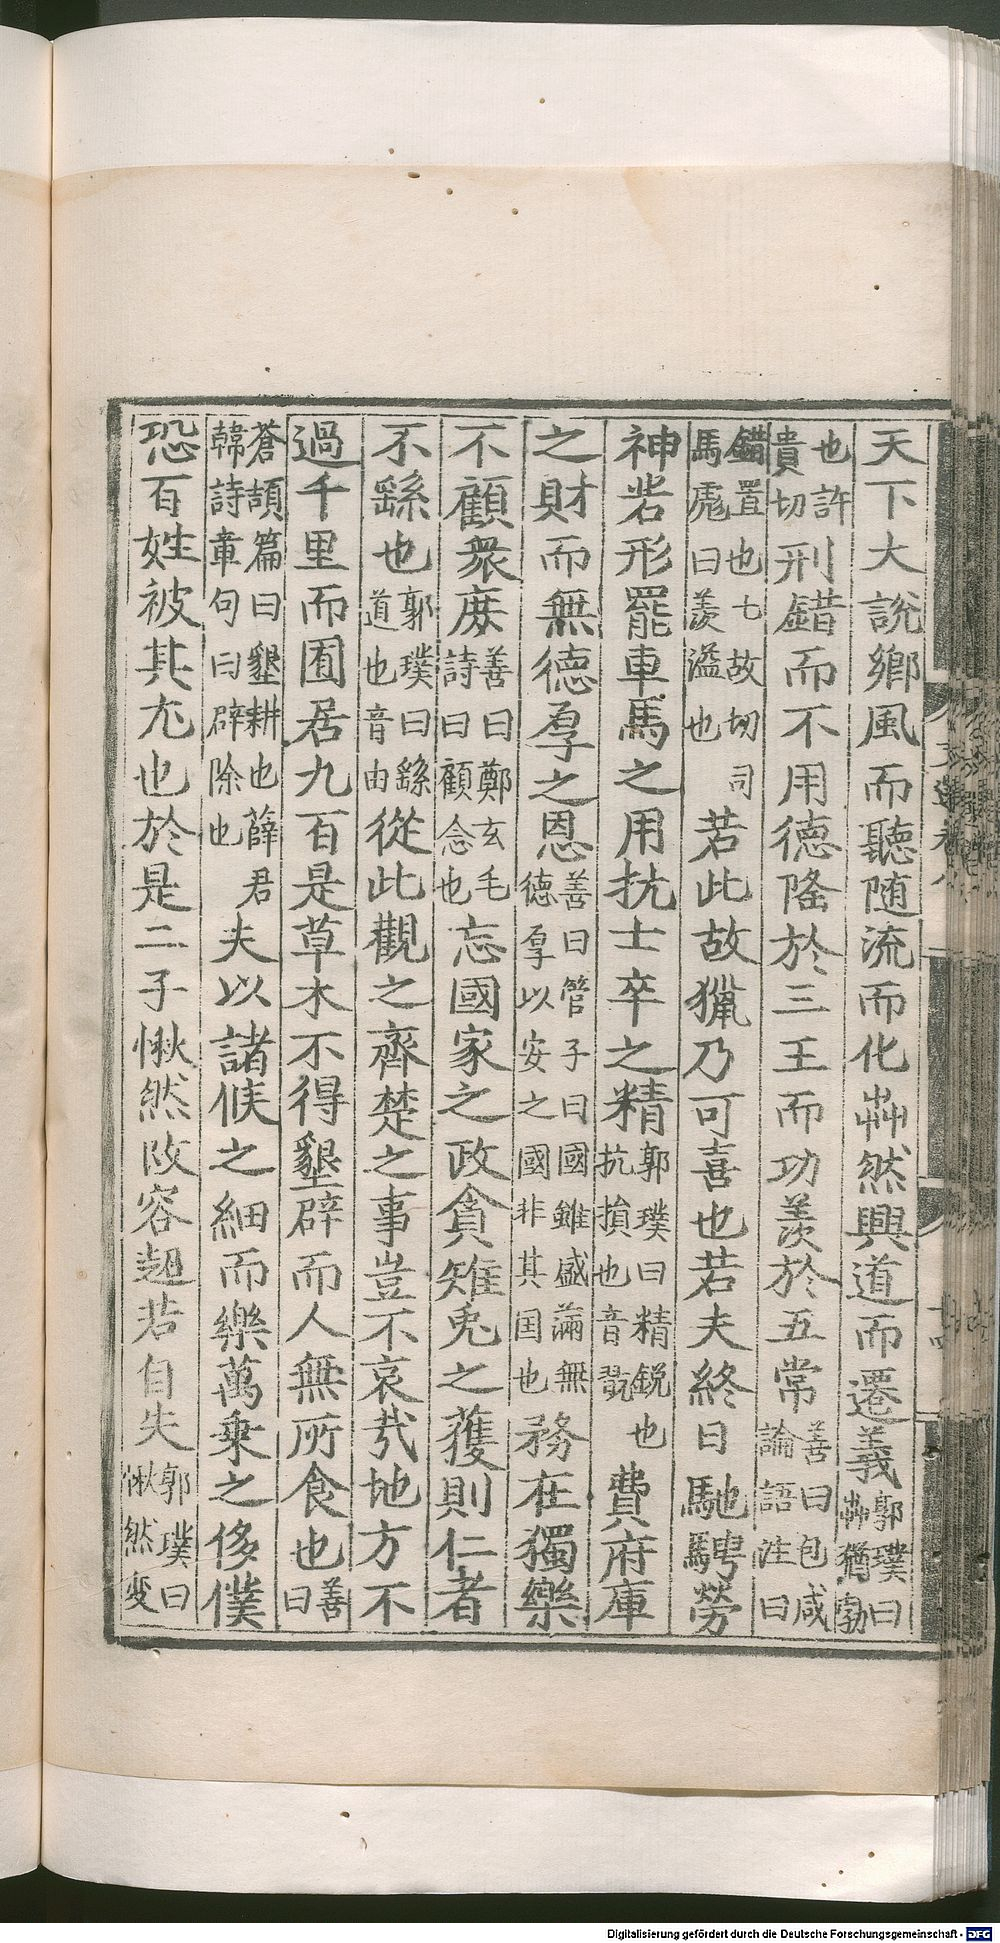 天下大說鄉風而聽随流而化芔然興道而遷義郭璞曰芔猶勃
也許貴切刑錯而不用德隆於三王而功羨於五常善曰包咸論語注曰
錯置也七故切司馬彪曰羨溢也若此故獵乃可喜也若夫終日馳騁勞
神若形罷車馬之用抗士卒之精郭璞曰精銳也抗損也音翫費府庫
之財而無德厚之恩善曰管子曰國雖盛滿無德厚以安之國非其国也務在獨樂
不顧衆庶善曰鄭玄毛詩曰顧念也忘國家之政貪雉兎之獲則仁者
不繇也郭璞曰繇道也音由從此觀之齊楚之事豈不哀㢤地方不
過千里而囿居九百是草木不得墾辟而人無所食也善曰
蒼頡篇曰墾耕也薛君韓詩章句曰辟除也夫以諸侯之細而樂萬乗之侈僕
恐百姓被其尤也於是二子愀然改容超若自失郭璞曰愀然変
Digitalisierung gefördert durch die Deutsche Forschungsgemeinschaft - DFG